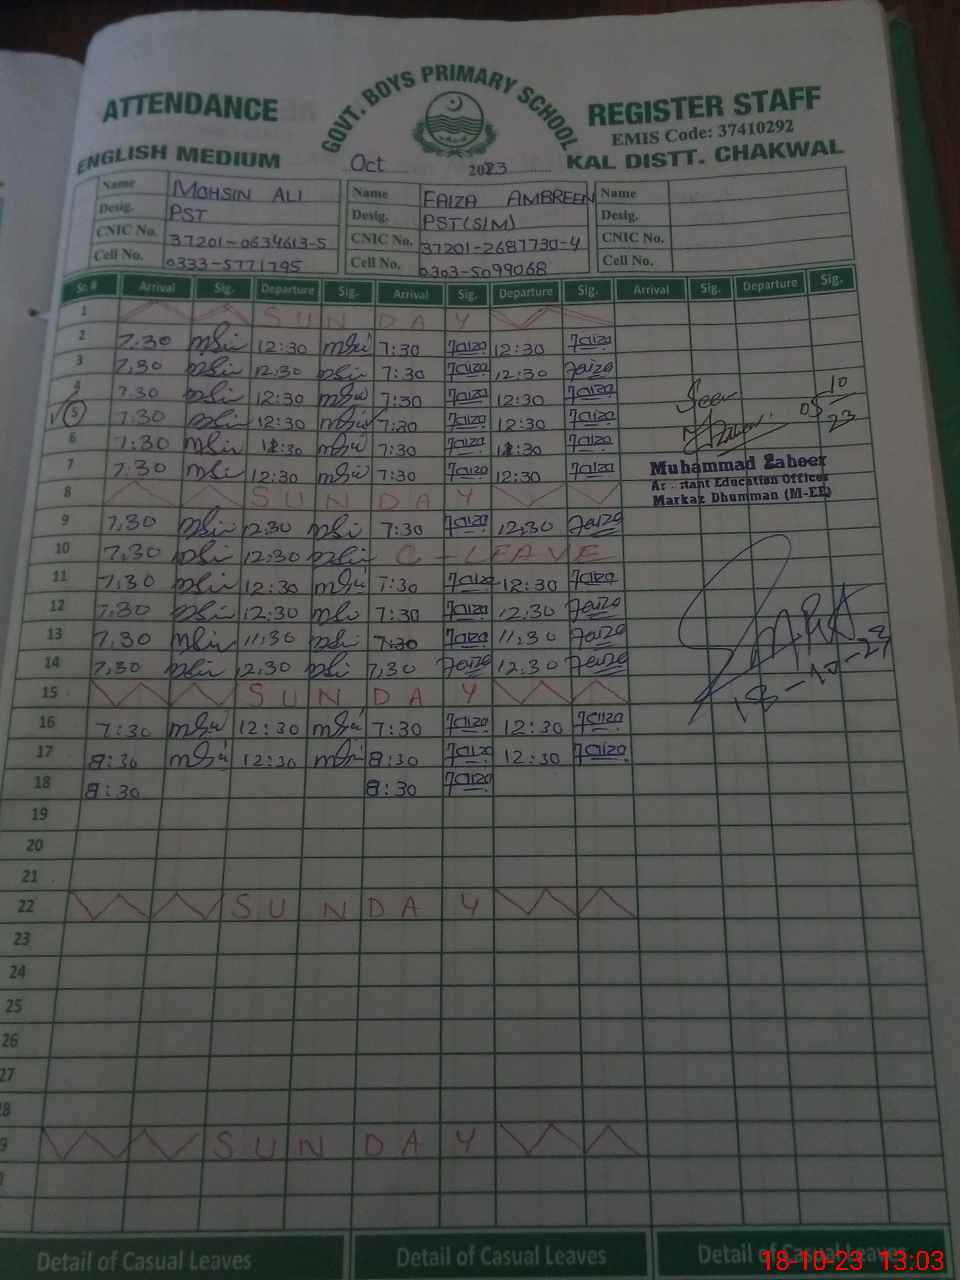 ATTENDANCE GOVT. BOYS PRIMARY SCHOOL REGISTER STAFF
EMIS Code: 37410292
ENGLISH MEDIUM Oct 2023 KAL DISTT. CHAKWAL
Name MOHSIN ALI Name FAIZA AMBREEN Name
Desig. PST Desig. PST(SIM) Desig.
CNIC No. 37201-0634613-5 CNIC No. 37201-2687730-4 CNIC No.
Cell No. 0333-5771795 Cell No. 0303-5099068 Cell No.
Sr. # Arrival Sig. Departure Sig. Arrival Sig. Departure Sig. Arrival Sig. Departure Sig.
1 SUNDAY
2 7.30 12:30 7:30 Faiza 12:30 Faiza
3 7.30 12:30 7:30 Faiza 12:30 Faiza
4 7.30 12:30 7:30 Faiza 12:30 Faiza
5 7:30 12:30 7:30 Faiza 12:30 Faiza
6 7:30 :30 7:30 Faiza :30 Faiza
7 7:30 12:30 7:30 Faiza 12:30 Faiza
Seen
05 10 23
Muhammad Zaheer
Education Officer
Markaz Dhumman (M-EE)
8 SUNDAY
9 7.30 12:30 7:30 Faiza 12.30 Faiza
10 7.30 12:30 C-LEAVE
11 7.30 12:30 7:30 Faiza 12:30 Faiza
12 7.30 12:30 7:30 Faiza 12.30 Faiza
13 7.30 11.30 7.30 Faiza 11.30 Faiza
14 7.30 12.30 7.30 Faiza 12.30 Faiza
15 SUNDAY
16 7:30 12:30 7:30 Faiza 12:30 Faiza
17 8:30 12:30 8:30 Faiza 12:30 Faiza
18 8:30 8:30 Faiza
19
20
21
22 SUNDAY
23
24
25
26
27
28
29 SUNDAY
Detail of Casual Leaves Detail of Casual Leaves Detail of Casual Leaves
18-10-23 13:03